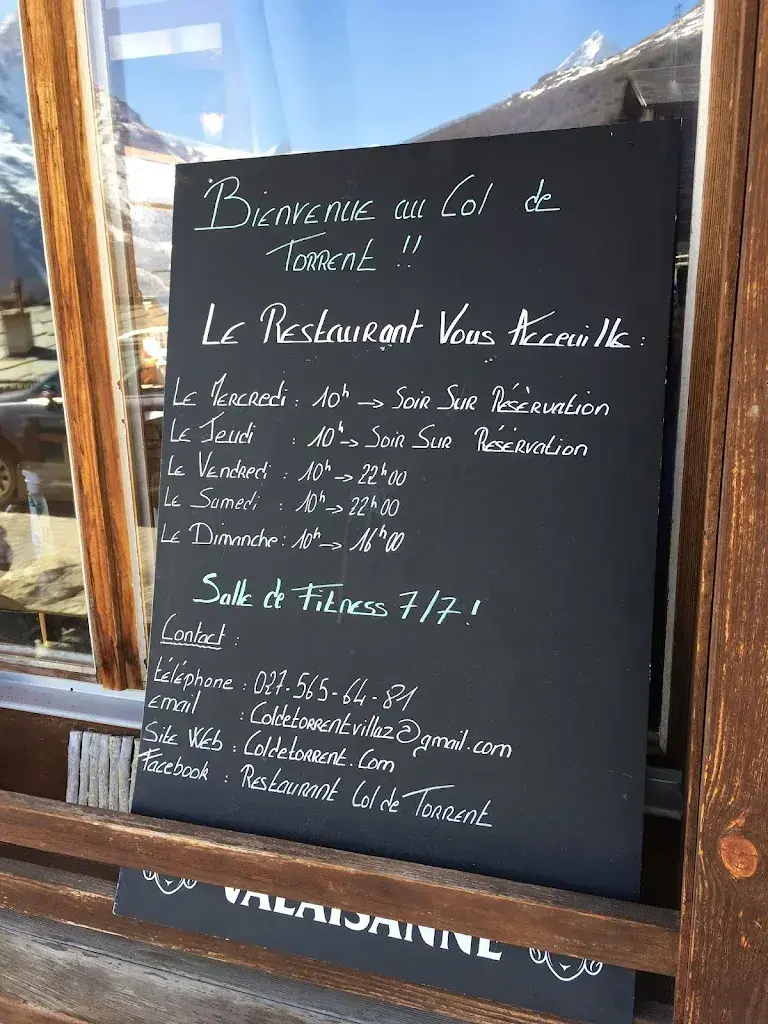 Bienvenue au Col de
Torrent !!
Le Restaurant Vous Acceuille :
Le Mercredi : 10h → Soir Sur Réservation
Le Jeudi : 10h → Soir Sur Réservation
Le Vendredi : 10h → 22h00
Le Samedi : 10h → 22h00
Le Dimanche : 10h → 16h00
Salle de Fitness 7/7 !
Contact :
téléphone : 027-565-64-81
email : Coldetorrentvillaz@gmail.com
Site Web : Coldetorrent.Com
Facebook : Restaurant Col de Torrent
VALAISANNE